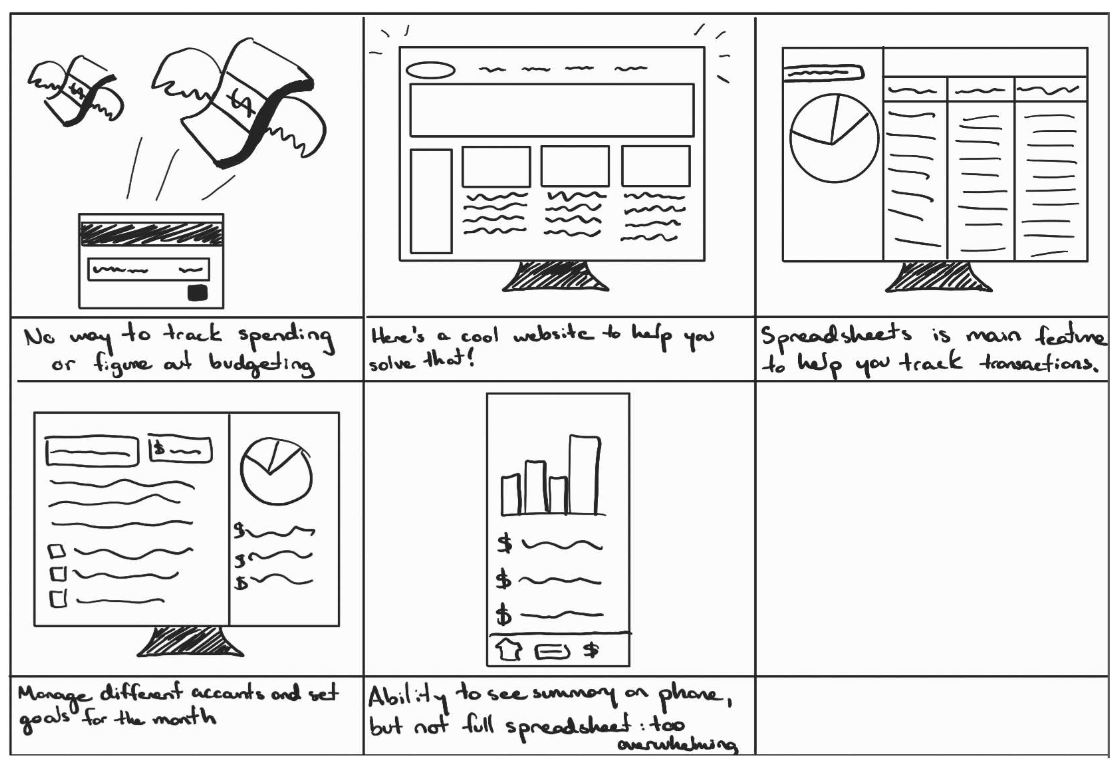 $
$
No way to track spending
or figure out budgeting
Here's a cool website to help you
solve that!
Spreadsheets is main feature
to help you track transactions.
$
$
$
$
Manage different accounts and set
goals for the month
$
$
$
$
Ability to see summary on phone,
but not full spreadsheet: too
overwhelming